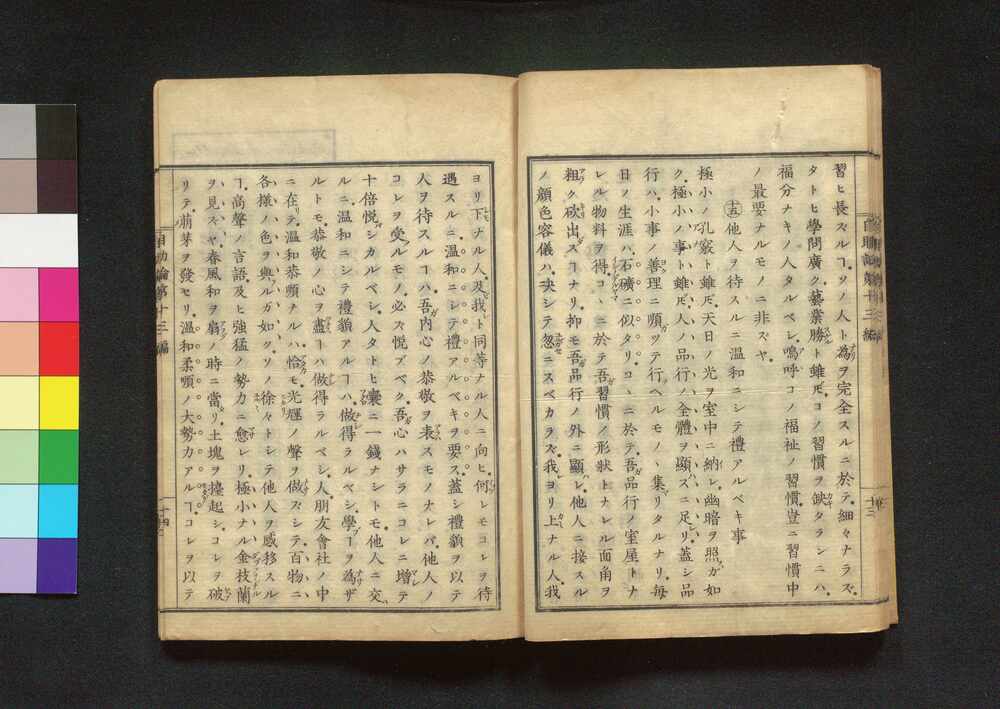 習ヒ長スルヿソノ人ト為ヲ完全スルニ於テ細々ナラズ
タトヒ學問廣ク藝業勝ト雖𪜈コノ習慣ヲ缺タランニハ
福分ナキノ人タルベシ嗚呼コノ福祉ノ習慣豈ニ習慣中
ノ最要ナルモノニ非ズヤ
十五他人ヲ待スルニ温和ニシテ禮アルベキ事
極小ノ孔竅ト雖𪜈天日ノ光ヲ室中ニ納レ幽暗ヲ照ガ如
ク極小ノ事ト雖𪜈人ノ品行ノ全體ヲ顯ズニ足リ蓋シ品
行ハ小事ノ善理ニ順ツテ行ヘルモノヽ集リタルナリ毎
日ノ生涯ハ石礦ニ似タリコヽニ於テ吾品行ノ室屋トナ
レル物料ヲ得コヽニ於テ吾習慣ノ形狀トナレル面角ヲ
粗ク砍出スヿナリ抑モ吾品行ノ外ニ顯レ他人ニ接スル
ノ顔色容儀ハ决シテ忽ニスベカラズ我ヨリ上ナル人我
自助論第十三編
十三
ヨリ下ナル人及我ト同等ナル人ニ向ヒ何レモコレヲ待
遇スルニ温和ニシテ禮アルベキヲ要ス蓋シ禮貌ヲ以テ
人ヲ待スルヿハ吾内心ノ恭敬ヲ表スモノナレバ他人ノ
コレヲ受ルモノ必ズ悦ブベク吾心ハサラニコレニ増テ
十倍悦シカルベシ人タトヒ囊ニ一錢ナシトモ他人ニ交
ルニ温和ニシテ禮貌アルヿハ做得ラルベシ學ヿヲ為ザ
ルトモ恭敬ノ心ヲ盡ヿハ做得ラルベシ人朋友會社ノ中
ニ在リテ温和恭順ナルハ恰モ光輝ノ聲ヲ做ズシテ百物ニ
各様ノ色ヲ與ルガ如クソノ徐々トシテ他人ヲ感移スル
ヿ高聲ノ言語及ヒ強猛ノ勢力ニ愈レリ極小ナル金枝蘭
ヲ見ズヤ春風和ヲ扇ノ時ニ當リ土塊ヲ擡起シコレヲ破
リテ萠芽ヲ發セリ温和柔順ノ大勢力アルヿコレヲ以テ
自助論第十三編
十四